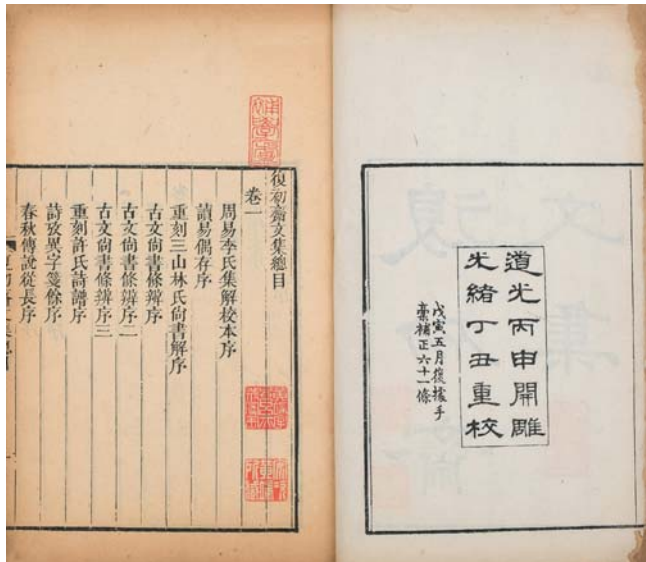 道光丙申開雕
光緒丁丑重校
戊寅五月復據手
稾補正六十一條
復初齋文集總目
卷一
周易李氏集解校本序
讀易偶存序
重刻三山林氏尙書解序
古文尙書條辨序
古文尙書條辨序二
古文尙書條辨序三
重刻許氏詩譜序
詩攷異字箋餘序
春秋傳說從長序